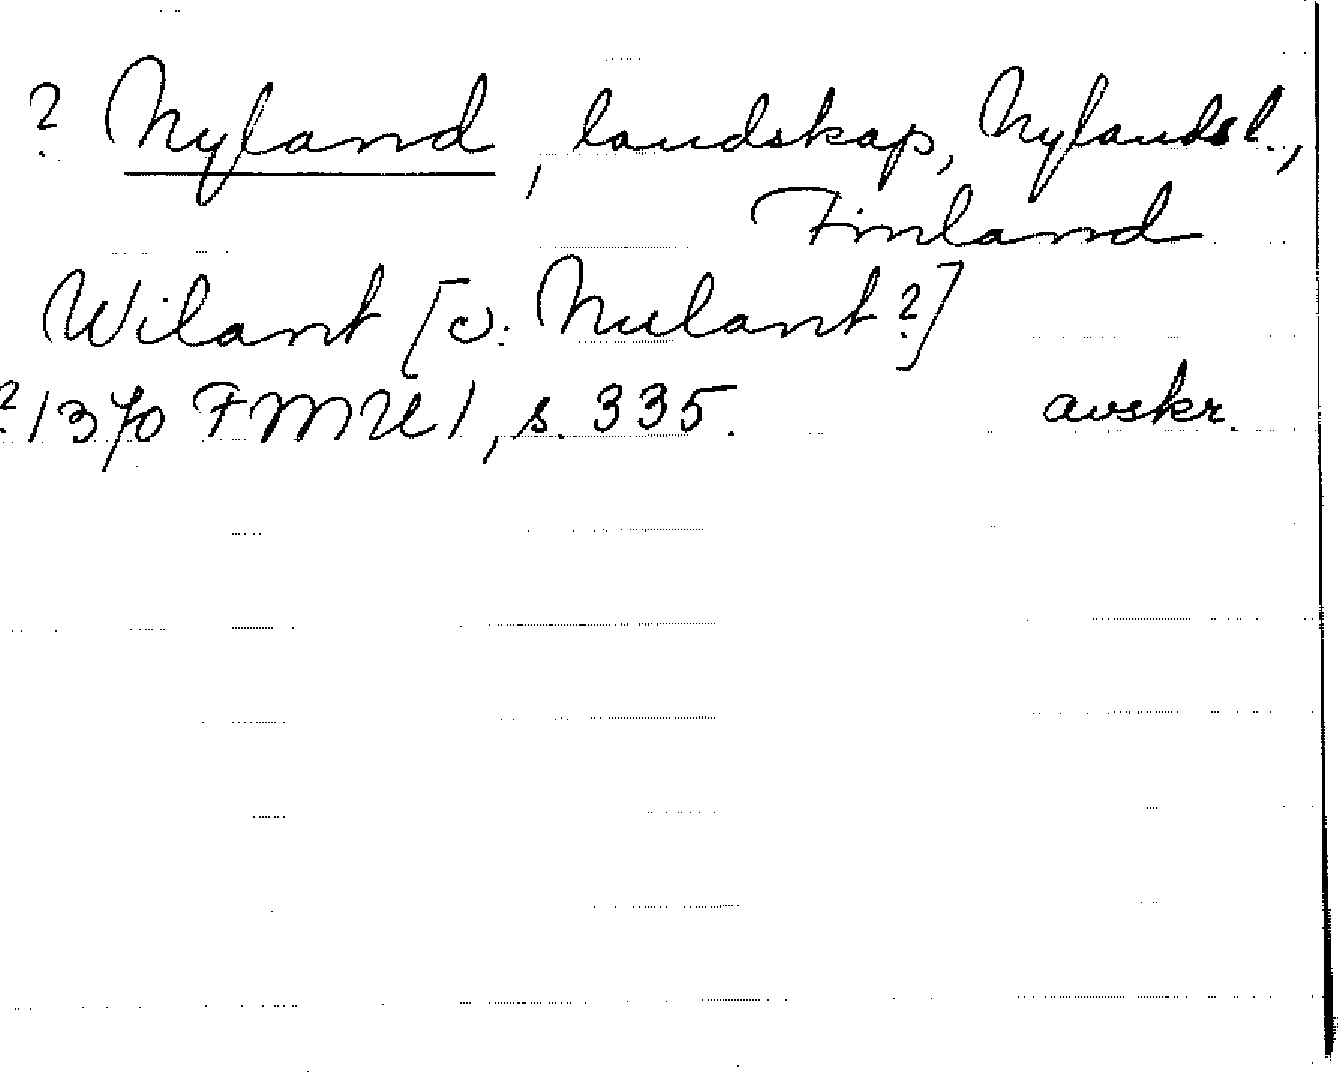 ? Nyland, landskap, Nylands l.,
Finland
Wilant [o: Nulant?]
?1370 FMU 1, s. 335. avskr.